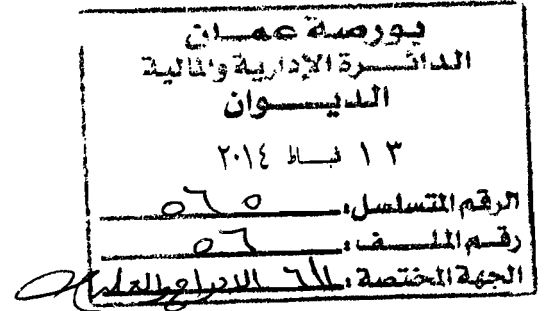 بورصة عمان
الدائرة الإدارية والمالية
الديوان
١٣ شباط ٢٠١٤
الرقم المتسلسل: ٥٦٥
رقم الملف: ٥٦
الجهة المختصة: الادراج